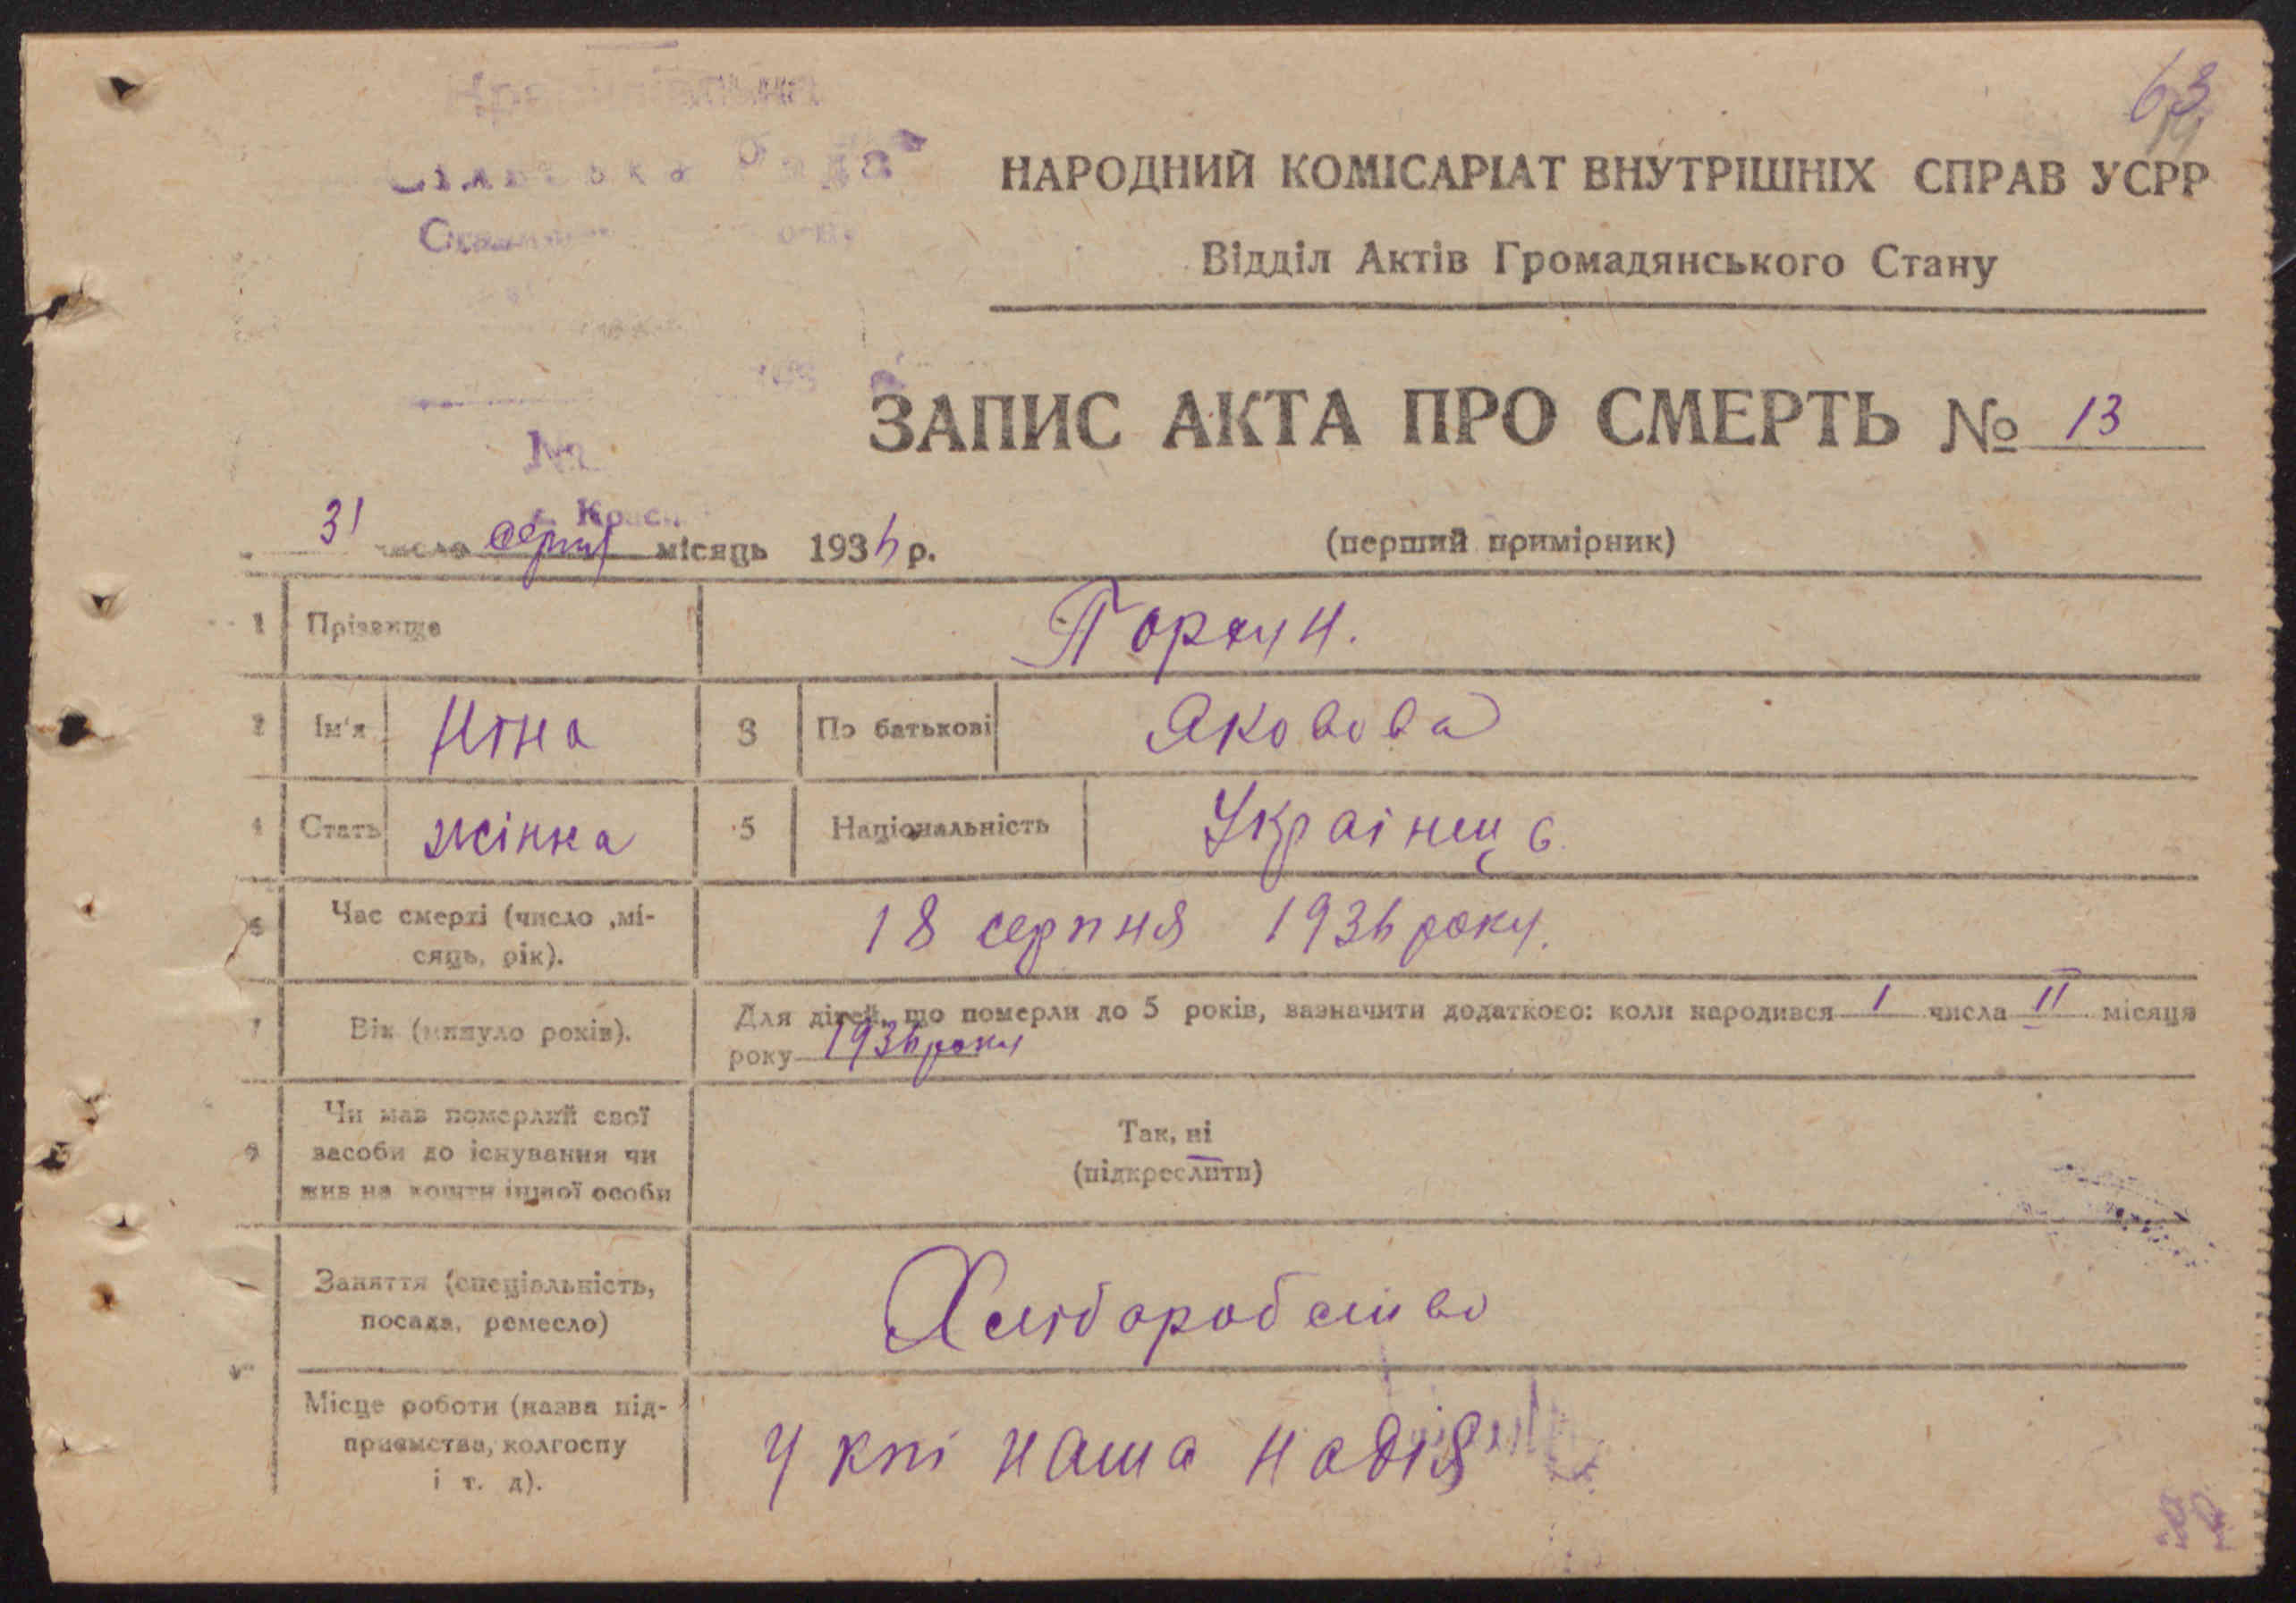 63
Рада
НАРОДНИЙ КОМІСАРІАТ ВНУТРІШНІХ СПРАВ УСРР
Відділ Актів Громадянського Стану
ЗАПИС АКТА ПРО СМЕРТЬ № 13
№
31 число серпня місяць 1936 р.
(перший примірник)
1 Прізвище
2 Ім'я Ніна 3 По батькові Яковова
4 Стать жінка 5 Національність Українец
6 Час смерті (число ,мі-
сяць, рік).
18 серпня 1936 року.
7 Вік (минуло років).
Для дітей, що померли до 5 років, зазначити додатково: коли народився 1 числа II місяця
року 1936 року
8 Чи мав померлий свої
засоби до існування чи
жив на кошти іншої особи
Так, ні
(підкреслити)
Заняття (спеціальність,
посада, ремесло)
Хліборобство
Місце роботи (назва під-
приємства, колгоспу
і т. д).
у кпі наша надія